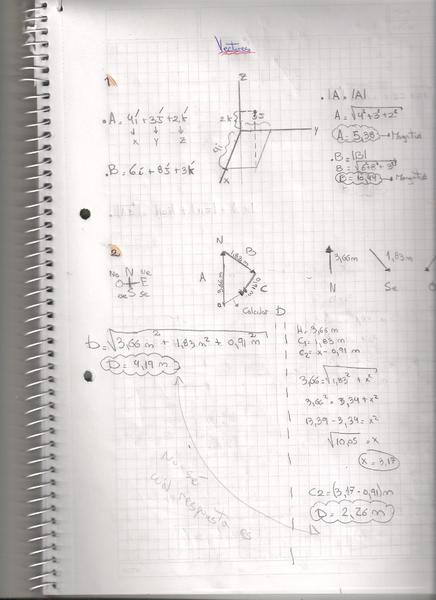 Vectores
1
. A = 4i + 3j + 2k
x y z
. B = 6i + 8j + 3k
z
2k
3j
4i
y
x
. |A| = |A|
A = √4² + 3² + 2²
A = 5,38 → Magnitud
. B = |B|
B = √6² + 8² + 3²
B = 10,44 → Magnitud
2
No N Ne
O E
So S Se
N
A
3,66 m
1,83 m
B
C
Calcular D
3,66 m
1,83 m
N
Se
O
D = √3,66 m² + 1,83 m² + 0,91 m²
D = 4,19 m
H = 3,66 m
C1 = 1,83 m
C2 = x - 0,91 m
3,66 = √1,83² + x²
3,66² = 3,34 + x²
13,39 - 3,34 = x²
√10,05 = x
x = 3,17
C2 = (3,17 - 0,91) m
D = 2,26 m
No sé
cuál respuesta es